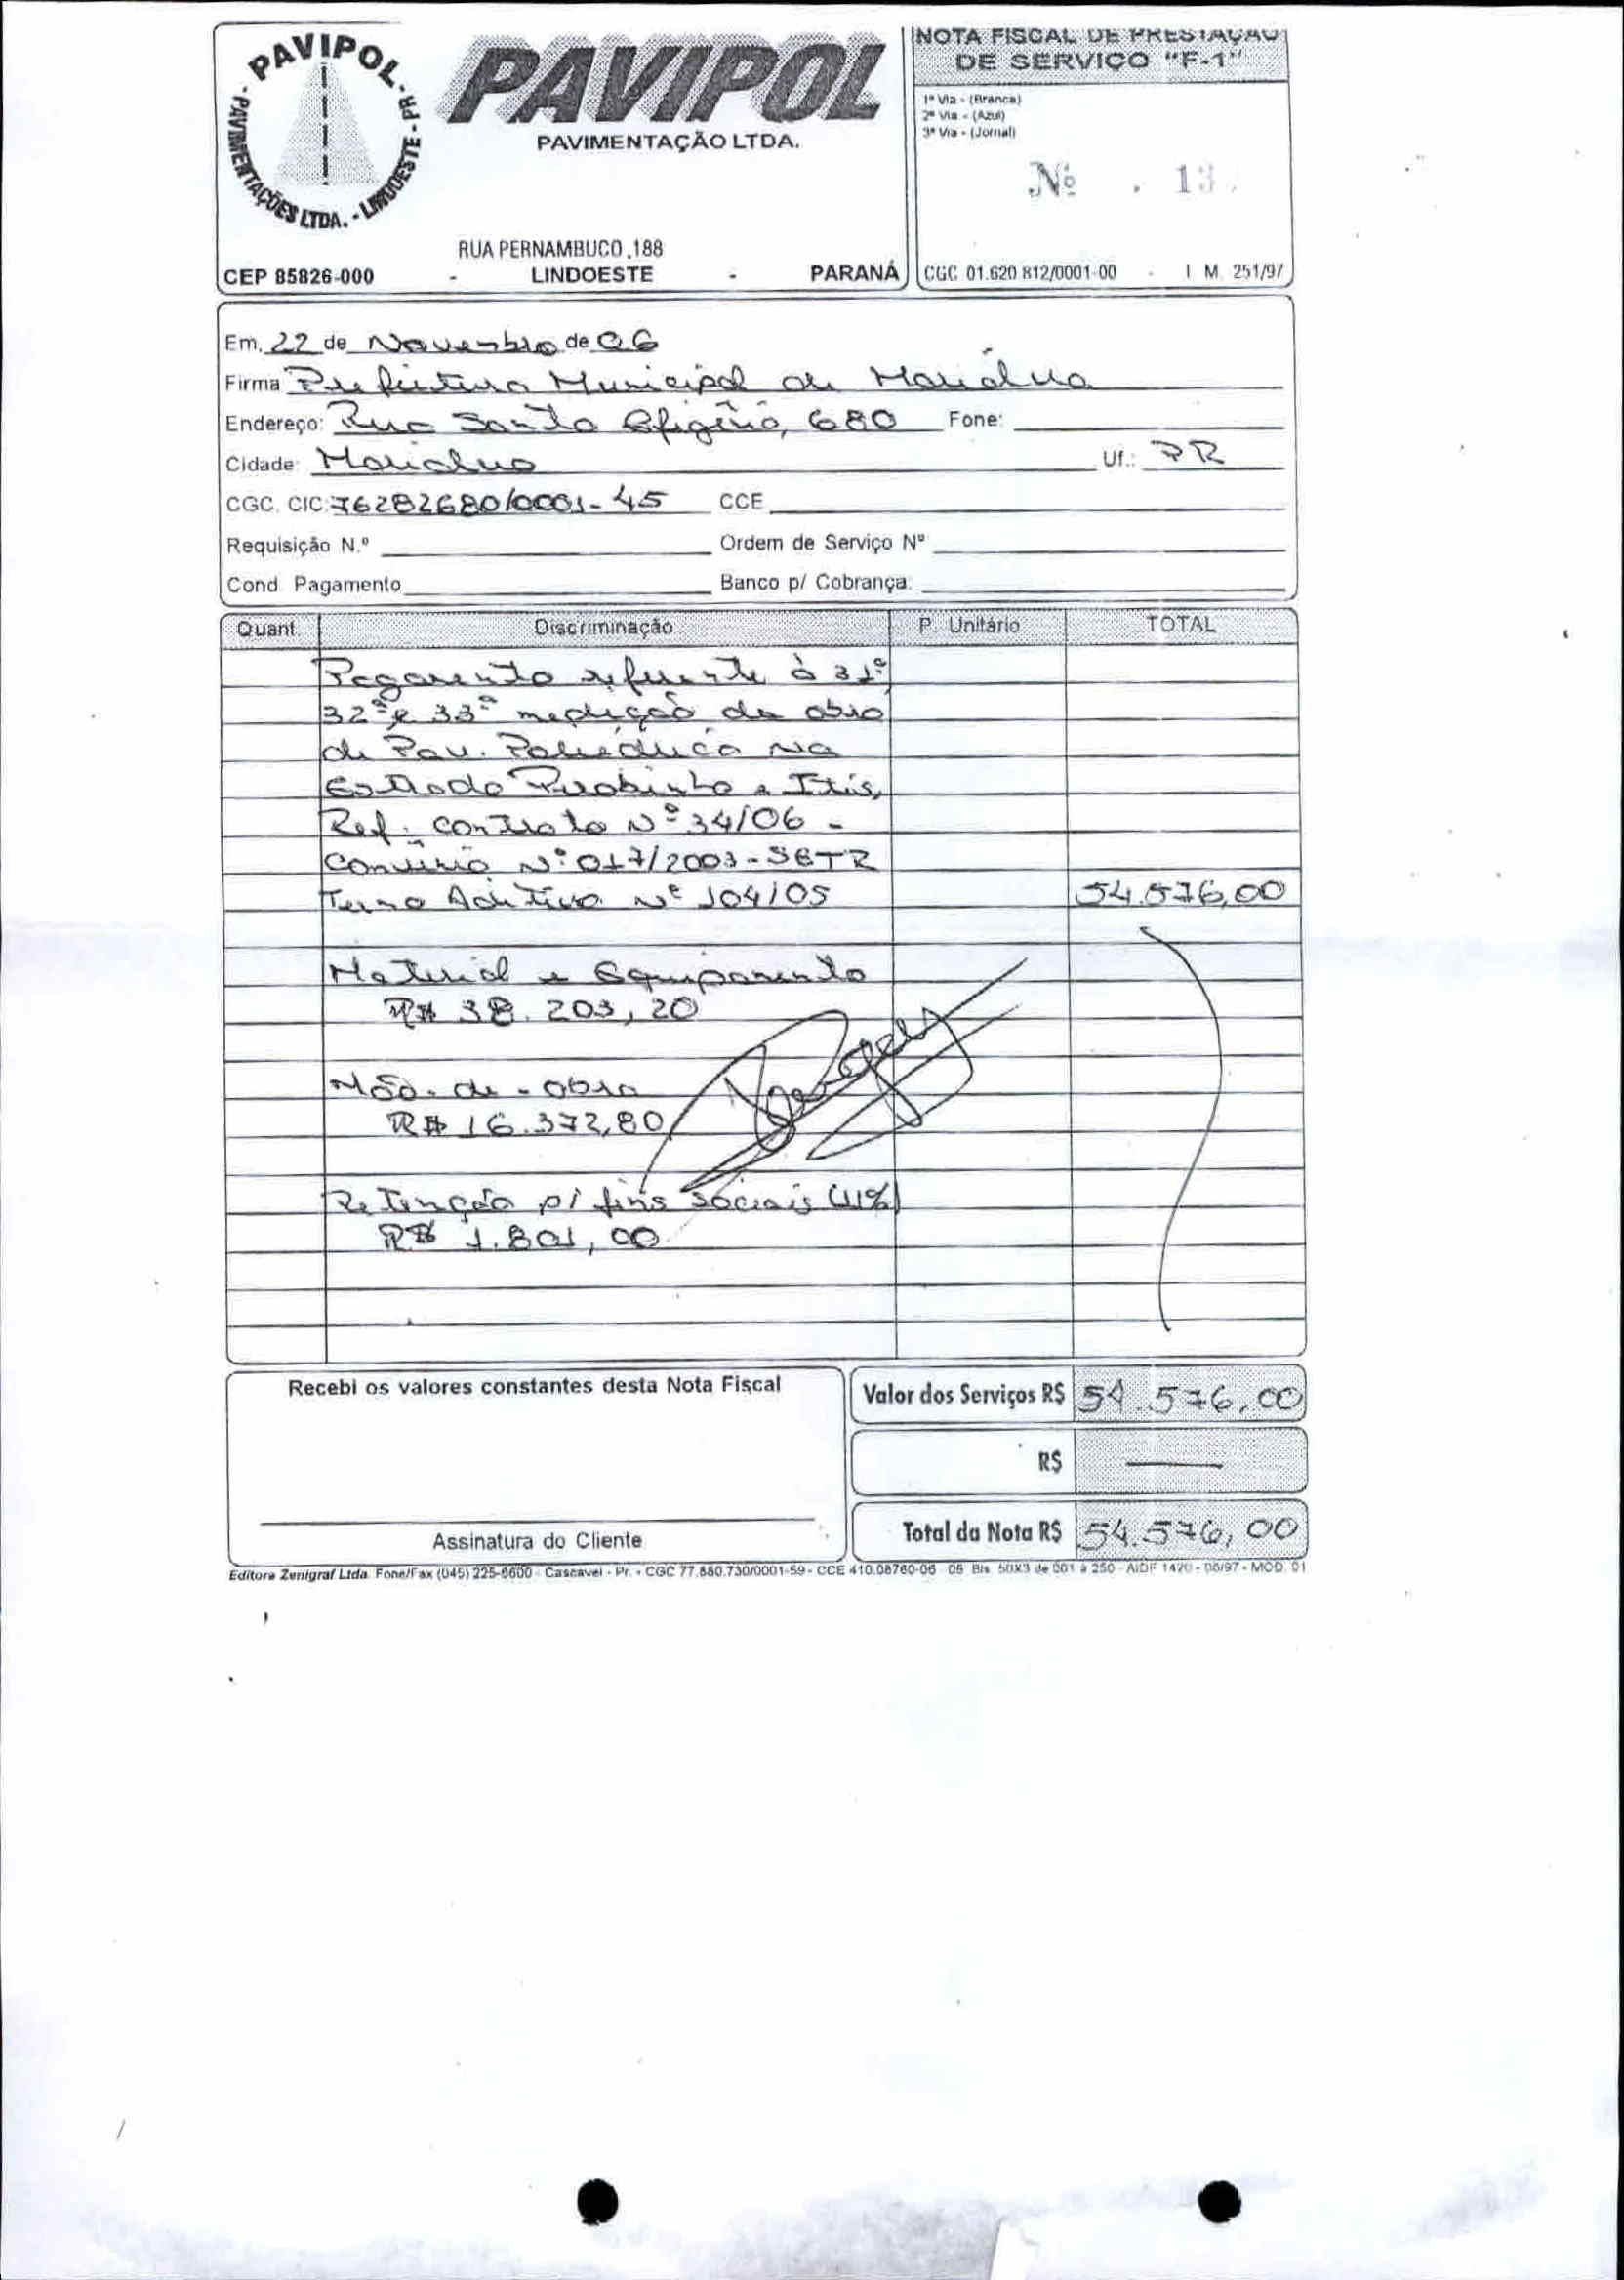 PAVIPOL - PAVIMENTAÇÕES LTDA. - LINDOESTE - PR -
PAVIPOL
PAVIMENTAÇÃO LTDA.
RUA PERNAMBUCO, 188
CEP 85826-000 - LINDOESTE - PARANÁ
NOTA FISCAL DE PRESTAÇÃO
DE SERVIÇO "F-1"
1ª Via - (Branca)
2ª Via - (Azul)
3ª Via - (Jornal)
Nº
CGC 01.620.812/0001-00 - I. M. 251/97
Em, 22 de Novembro de 06
Firma Prefeitura Municipal de Marialva
Endereço: Rua Santa Efigênia, 680 Fone:
Cidade: Marialva Uf.: PR
CGC. CIC: 76282680/0001-45 CCE
Requisição N.º Ordem de Serviço Nº
Cond. Pagamento Banco p/ Cobrança:
Quant. Discriminação P. Unitário TOTAL
Pagamento referente à 31ª
32ª e 33ª medição da obra
de Pav. Poliédrica na
Estrada Pirobinha e Itis,
Ref. contrato Nº 34/06 -
Convênio Nº 017/2003-SETR
Termo Aditivo Nº 104/05 54.576,00
Material e Equipamento
R$ 38.203,20
Mão-de-obra
R$ 16.372,80
Retenção p/ fins sociais (11%)
R$ 1.801,00
Recebi os valores constantes desta Nota Fiscal
Assinatura do Cliente
Valor dos Serviços R$ 54.576,00
R$ —
Total da Nota R$ 54.576,00
Editora Zenigraf Ltda. Fone/Fax (045) 225-6600 - Cascavel - Pr. - CGC 77.880.730/0001-59 - CCE 410.08760-06 05 Bls. 50X3 de 001 à 250 - AIDF 1420 - 06/97 - MOD. 01